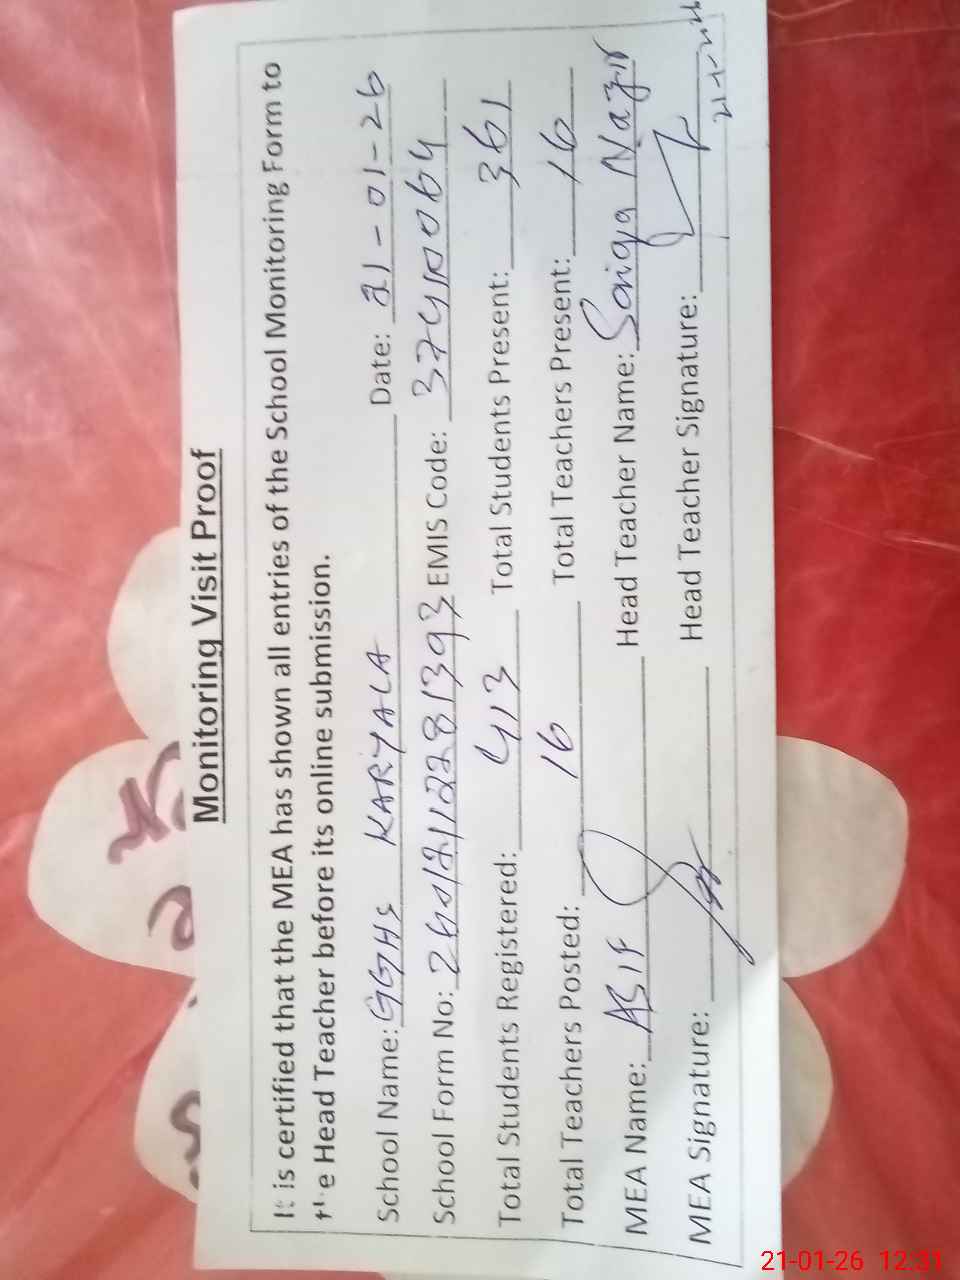 Monitoring Visit Proof
It is certified that the MEA has shown all entries of the School Monitoring Form to
the Head Teacher before its online submission.
School Name: GGHS KARYALA Date: 21-01-26
School Form No: EMIS Code: 37410064
Total Students Registered: 413 Total Students Present: 361
Total Teachers Posted: 16 Total Teachers Present: 16
MEA Name: ASIF Head Teacher Name: Saniya Nazir
MEA Signature: Head Teacher Signature:
21-01-26 12:31